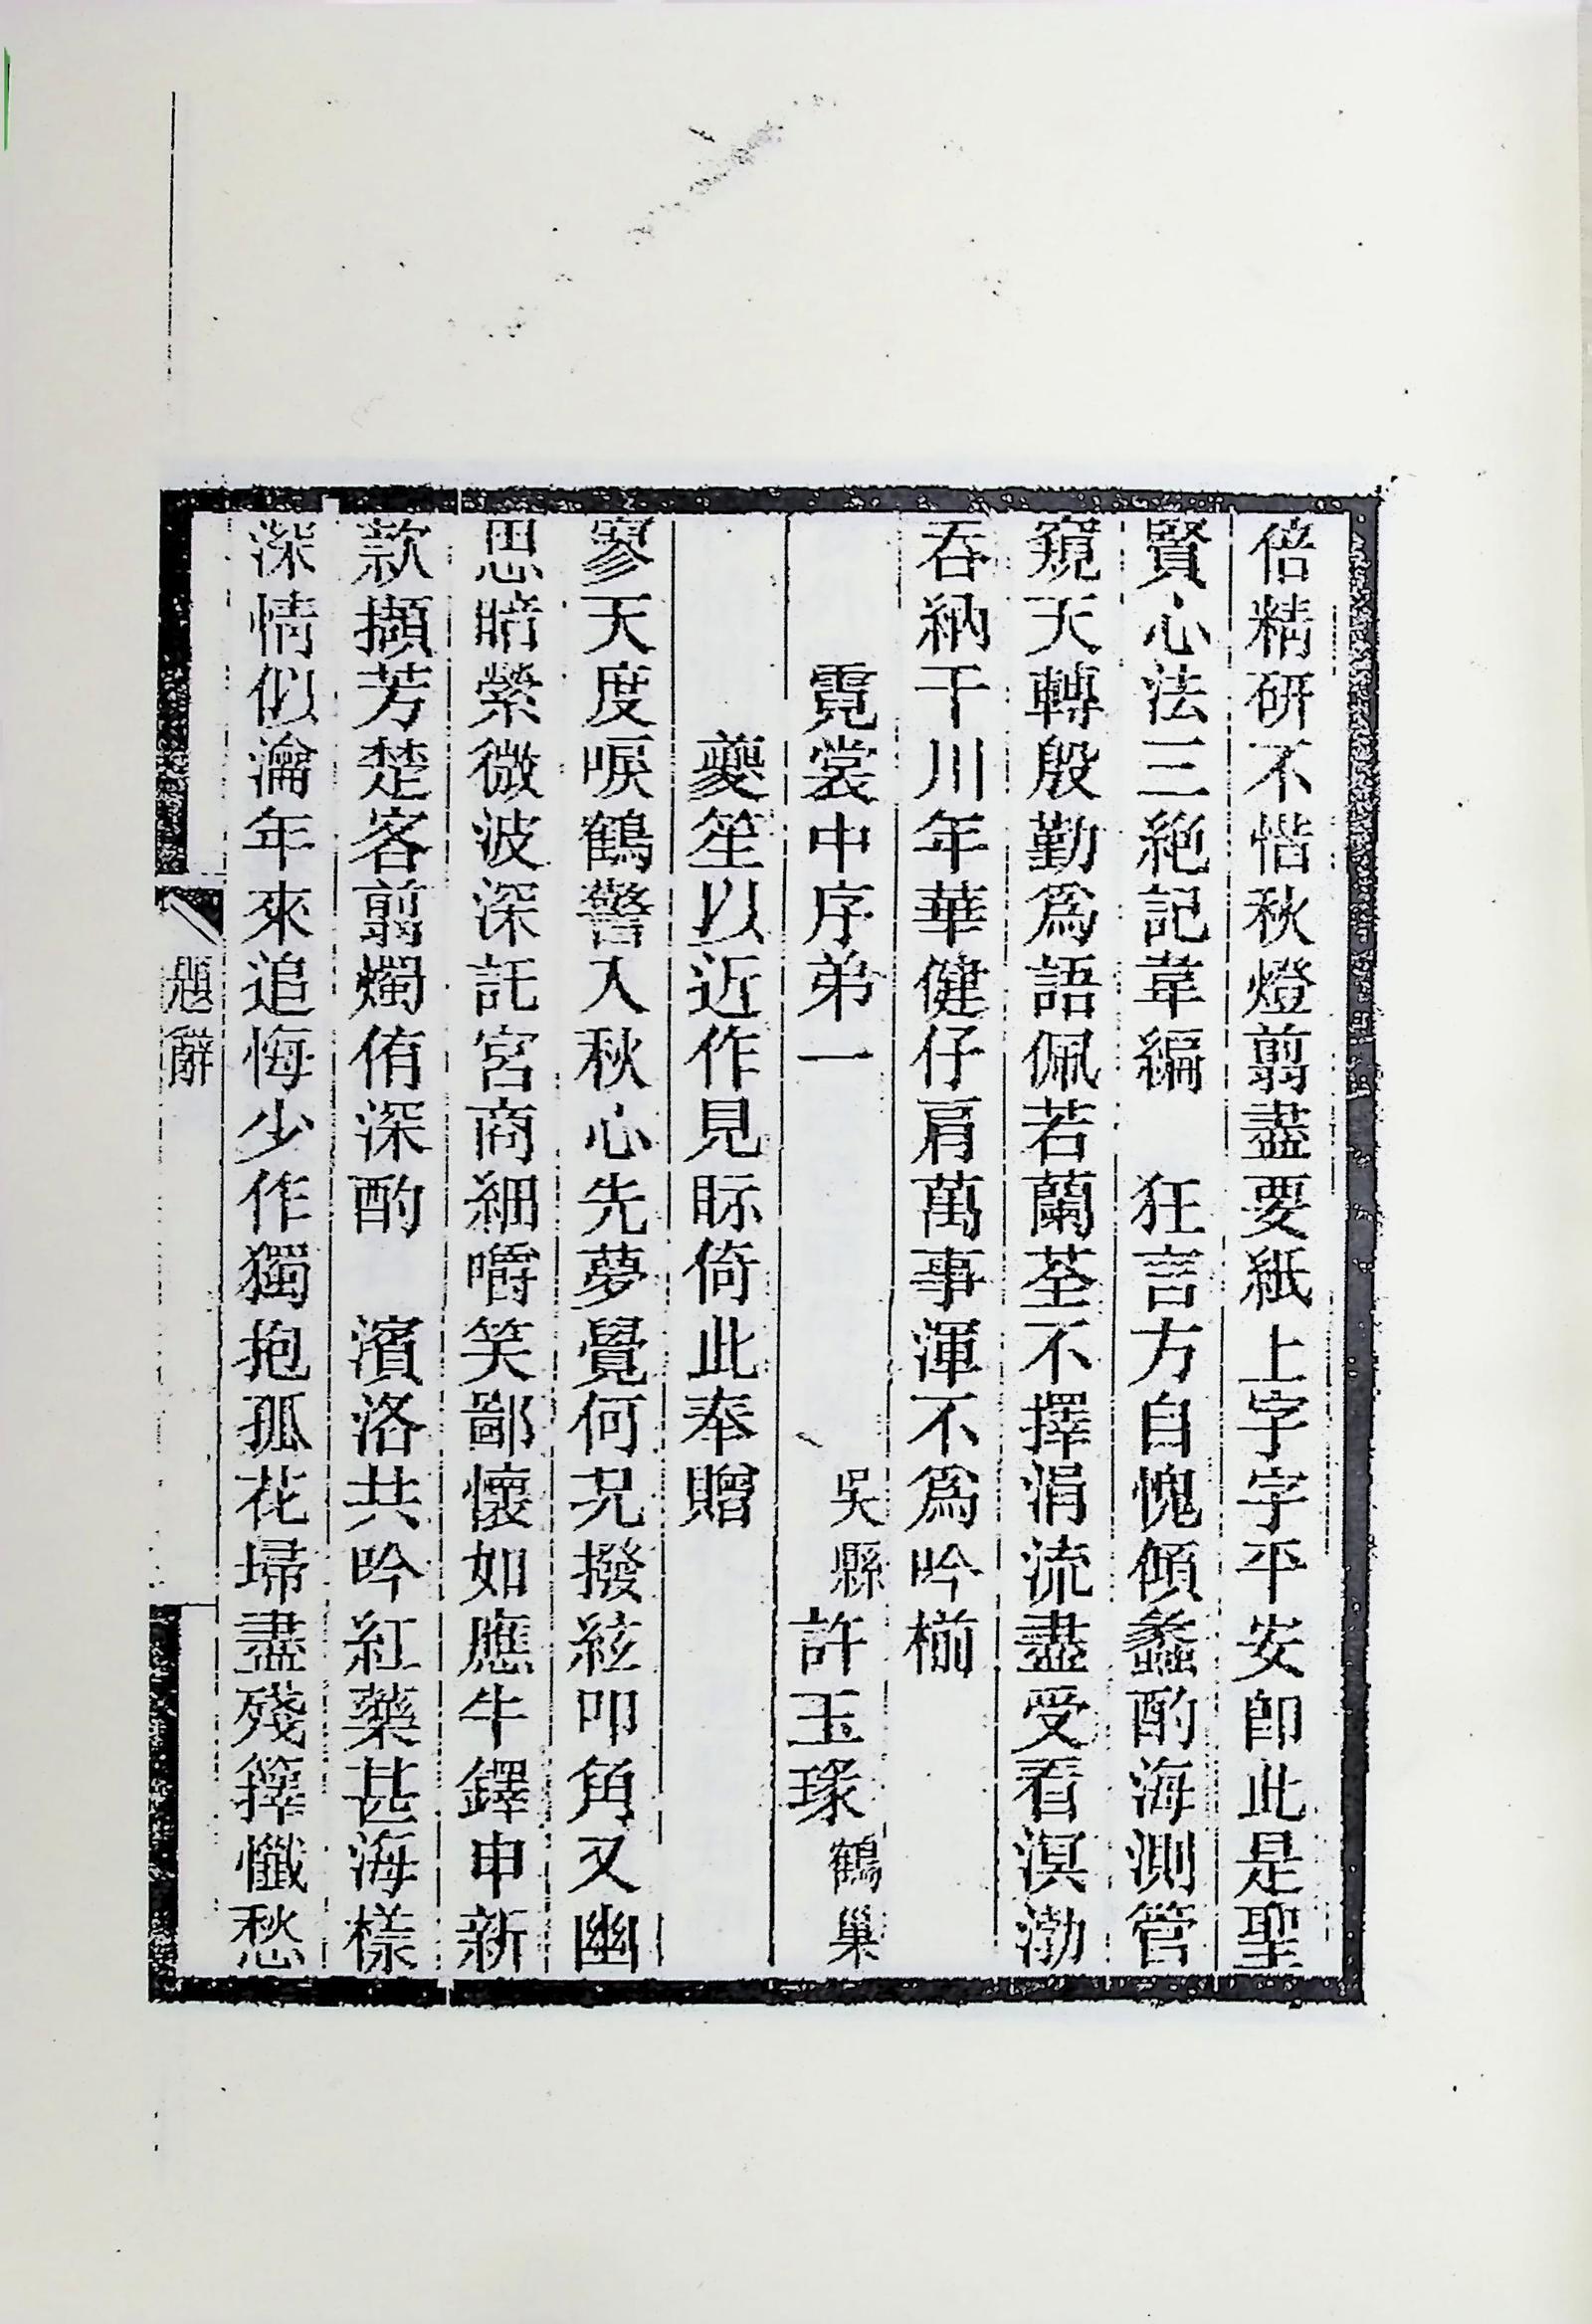 倍精研不惜秋燈翦盡要紙上字字平安卽此是聖
賢心法三絶記韋編　狂言方自愧傾蠡酌海測管
窺天轉殷勤爲語佩若蘭荃不擇涓流盡受看溟渤
吞納千川年華健仔肩萬事渾不爲吟櫥
霓裳中序弟一　吳縣許玉瑑鶴巢
夔笙以近作見眎倚此奉贈
寥天度唳鶴警入秋心先夢覺何況撥絃叩角又幽
思暗縈微波深託宮商細嚼笑鄙懷如應牛鐸申新
款擷芳楚客翦燭侑深酌　濱洛共吟紅藥甚海樣
深情似瀹年來追悔少作獨抱孤花埽盡殘籜懺愁
題辭